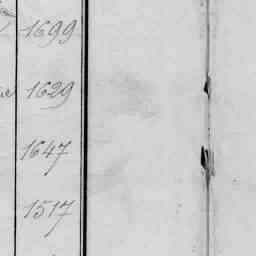 1699
1629
1647
1517